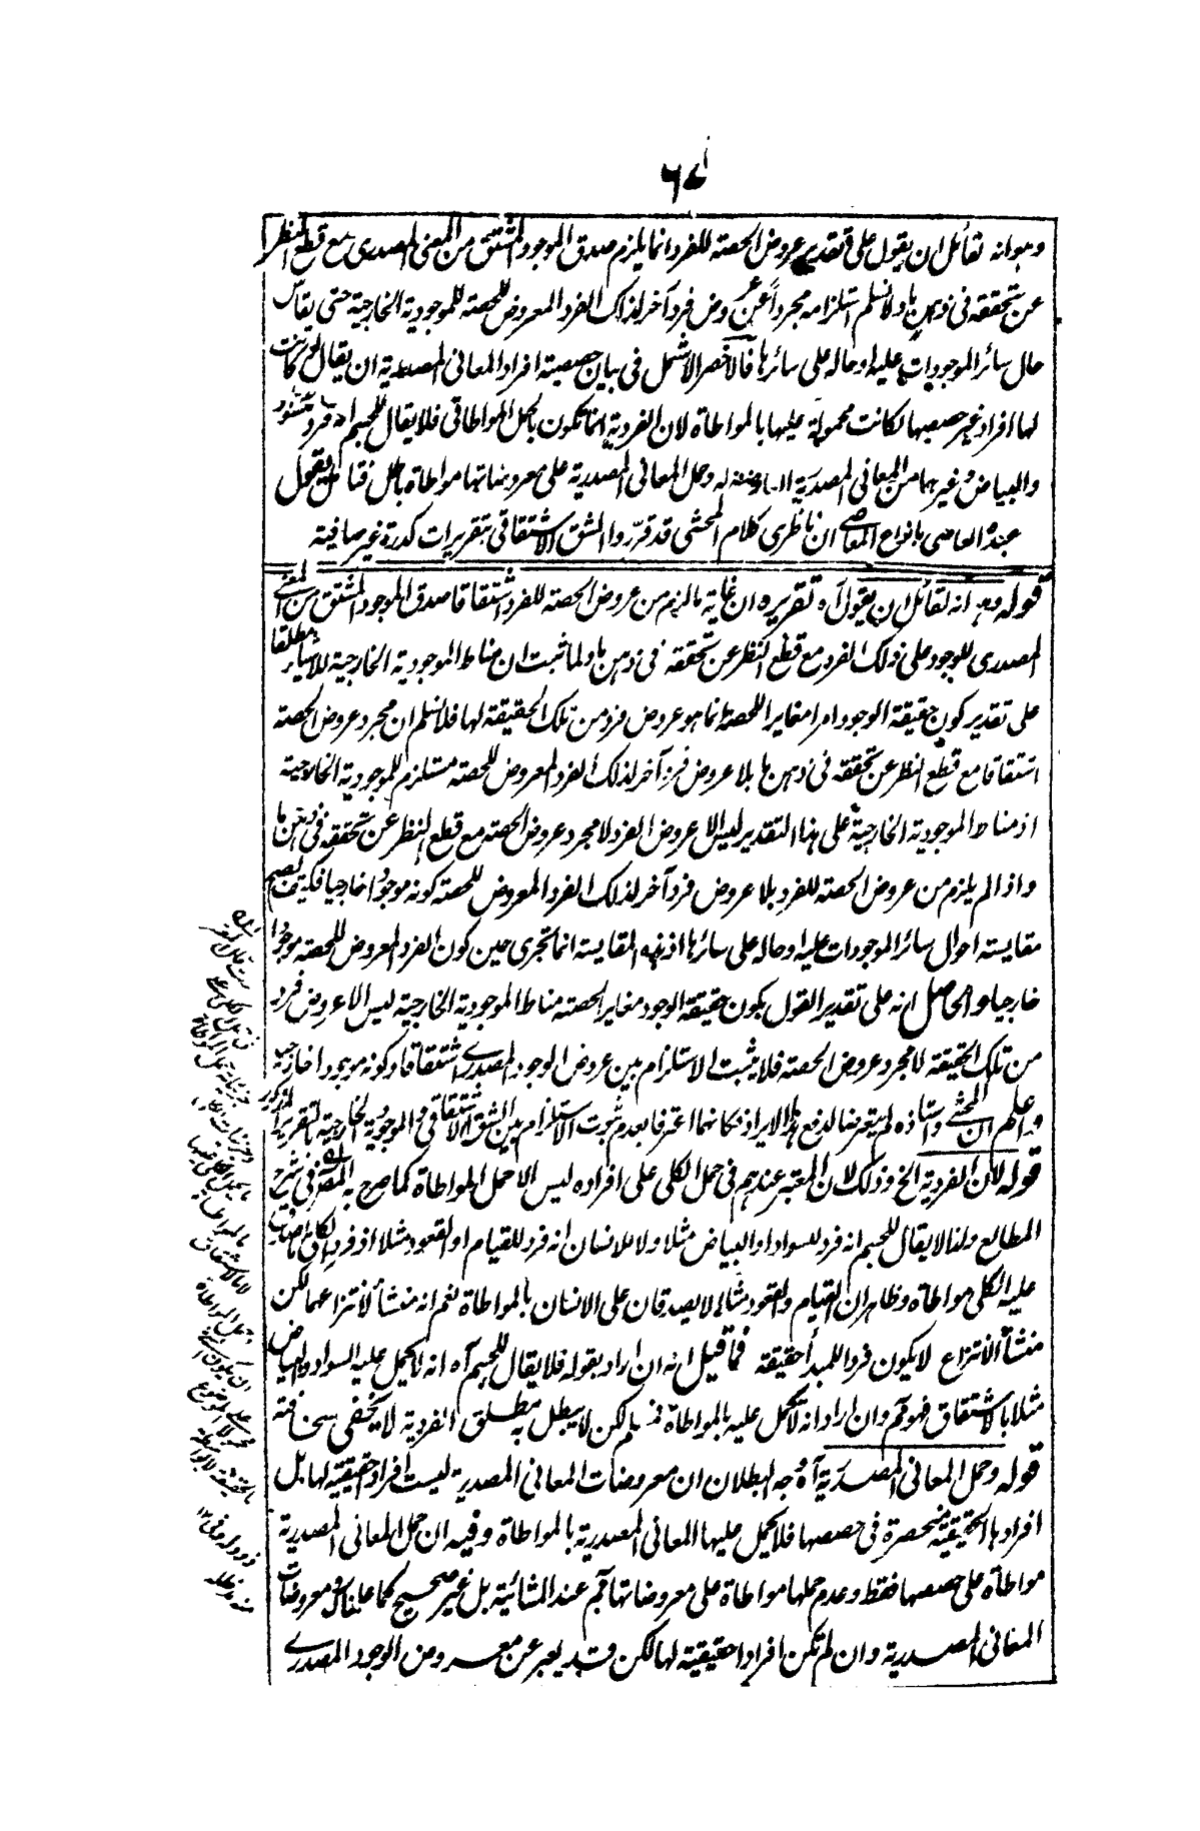 وهو انه لقائل ان يقول على تقدير عروض الحصة للفرد انما يلزم صدق الموجود المشتق من المعنى المصدري مع قطع النظر
عن تحققه في ذهن ما ولا نسلم استلزامه مجردا عن عروض فرد آخر لذلك الفرد المعروض للحصة للموجودية الخارجية حتى يقاس
حال سائر الموجودات عليه او حاله على سائرها فالاخصر الاشمل في بيان حصصية افراد المعاني المصدرية ان يقال لو كانت
لها افراد غير حصصها لكانت محمولة عليها بالمواطاة لان الفردية انما تكون بالحمل المواطاتي فلا يقال للجسم انه فرد للسواد
والبياض وغيرهما من المعاني المصدرية العارضة له وحمل المعاني المصدرية على معروضاتها مواطاة باطل فتامل يقول
عبده العاصي بانواع المعاصي ان ناظري كلام المحشي قد قرروا الشق الاشتقاقي بتقريرات كدرة غير صافية
قوله وهو انه لقائل ان يقول آه تقريره ان غاية ما لزم من عروض الحصة للفرد اشتقاقا صدق الموجود المشتق من المعنى
المصدري للوجود على ذلك الفرد مع قطع النظر عن تحققه في ذهن ما ولما ثبت ان مناط الموجودية الخارجية للاشياء مطلقا
على تقدير كون حقيقة الوجود امرا مغايرا للحصة انما هو عروض فرد من تلك الحقيقة لها فلا نسلم ان مجرد عروض الحصة
اشتقاقا مع قطع النظر عن تحققه في ذهن ما بلا عروض فرد آخر لذلك الفرد المعروض للحصة مستلزم للموجودية الخارجية
اذ مناط الموجودية الخارجية على هذا التقدير ليس الا عروض الفرد لا مجرد عروض الحصة مع قطع النظر عن تحققه في ذهن ما
واذا لم يلزم من عروض الحصة للفرد بلا عروض فرد آخر لذلك الفرد المعروض للحصة كونه موجودا خارجيا فكيف تصح
مقايسة احوال سائر الموجودات عليه او حاله على سائرها اذ هذه المقايسة انما تجرى حين كون الفرد المعروض للحصة موجودا
خارجيا والحاصل انه على تقدير القول بكون حقيقة الوجود مغاير الحصة مناط الموجودية الخارجية ليس الا عروض فرد
من تلك الحقيقة لا مجرد عروض الحصة فلا يثبت الاستلزام بين عروض الوجود المصدري اشتقاقا وكونه موجودا خارجيا
واعلم ان المحشي واستاذه لم يتعرضا لدفع هذا الايراد فكانهما اعترفا بعدم ثبوت الاستلزام بين الشق الاشتقاقي والموجودية الخارجية بالتقرير المذكور
قوله لان الفردية الخ وذلك لان المعتبر عندهم في حمل الكلي على افراده ليس الا حمل المواطاة كما صرح به المص في شرح
المطالع ولذا لا يقال للجسم انه فرد للسواد او البياض مثلا ولا للانسان انه فرد للقيام او القعود مثلا اذ فرد الكلي ما صدق
عليه الكلي مواطاة وظاهر ان القيام والقعود مثلا لا يصدقان على الانسان بالمواطاة نعم انه منشأ لانتزاعهما لكن
منشأ الانتزاع لا يكون فردا للمبدأ حقيقة فما قيل انه ان اراد بقوله فلا يقال للجسم آه انه لا يحمل عليه السواد والبياض
مثلا بالاشتقاق فهو مم وان اراد انه لا يحمل عليه بالمواطاة فمسلم لكن لا يبطل به مطلق الفردية لا يخفى سخافته
قوله وحمل المعاني المصدرية آه وجه البطلان ان معروضات المعاني المصدرية ليست افرادا حقيقية لها بل
افرادها الحقيقية منحصرة في حصصها فلا يحمل عليها المعاني المصدرية بالمواطاة وفيه ان حمل المعاني المصدرية
مواطاة على حصصها فقط وعدم حملها مواطاة على معروضاتها مم عند المشائية بل غير صحيح كما علمناك ومعروضات
المعاني المصدرية وان لم تكن افرادا حقيقية لها لكن قد يعبر عن معروض الوجود المصدري